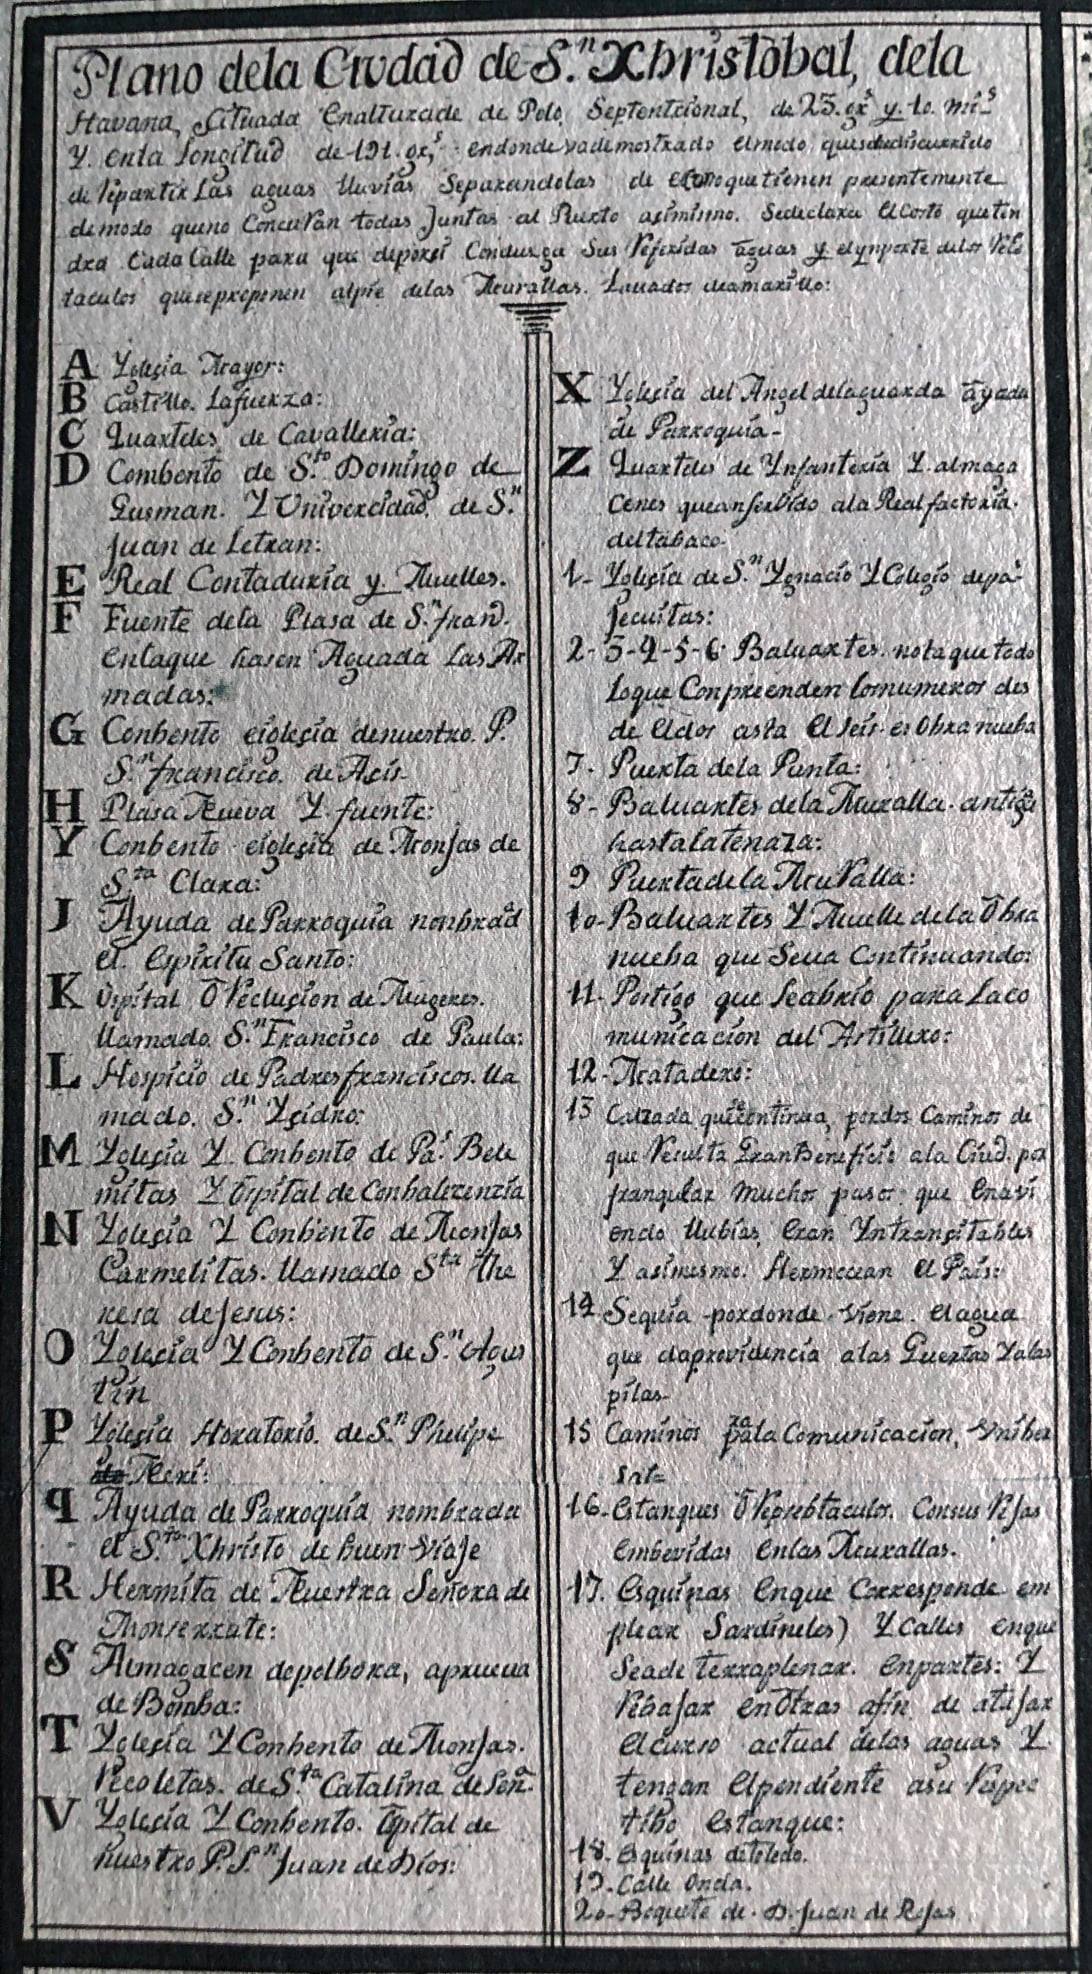 Plano dela Civdad de S.n Xhristobal, dela
Havana, Cituada Enalturade de Polo, Septentrional, de 23. gr.s y 10. mi.s
Y. enla Longitud de 191. gr.s, endonde vademostrado elmodo, quesehadiscurrido
de repartir Las aguas lluvias, Separandolas de como que tienen presentemente
demodo queno Concurran todas Juntas al Puerto asimismo. Sedeclara El Costo queten
dra Cada Calle para que deporsi Condusga Sus Referidas aguas y elynporte delos Rese
taculos quesepreponen alpie delas Murallas. Lauados deamarillo:
A Yglesia Mayor:
B Castillo. Lafuerza:
C Quarteles de Cavalleria:
D Combento de S.to Domingo de
Gusman. Y Univercidad, de S.n
Juan de Letran:
E Real Contaduria y Muelles.
F Fuente dela Plasa de S.n fran.
enlaque hasen Aguada Las Ar
madas:
G Conbento eiglesia denuestro. P.
S.n francisco. de Acis
H Plasa Nueva Y fuente:
Y Conbento eiglesia de Monjas de
S.ta Clara:
J Ayuda de Parroquia nonbrad
el Espiritu Santo:
K Ospital O Reclusion de Mugeres.
llamado. S.n Francisco de Paula:
L Hospicio de Padres franciscos. lla
mado. S.n Ysidro:
M Yglesia Y Conbento de Pa.s Bele
mitas Y Ospital de Conbalezenzia
N Yglesia Y Conbento de Monjas
Carmelitas. llamado S.ta The
resa de Jesus:
O Yglesia Y Conbento de S.n Agus
tin
P Yglesia Horatorio. de S.n Phelipe
Neri:
q Ayuda de Parroquia nombrada
el S.to Xhristo de buen Viaje
R Hermita de Nuestra Señora de
Monserrate:
S Almagacen depolbora, aprueua
de Bomba:
T Yglesia Y Conbento de Monjas.
Recoletas. de S.ta Catalina de Sen.a
V Yglesia Y Conbento. Ospital de
nuestro P. S.n Juan de Dios:
X Yglesia del Angel delaguarda ayuda
de Parroquia-
Z Quarteles de Ynfanteria Y almaga
Cenes queanserbido ala Real factoria.
deltabaco-
1- Yglesia de S.n Ygnacio Y Colegio depa.s
Jecuitas:
2-3-4-5-6- Baluartes. nota que todo
loque Conpreenden losnumeros des
de eldos asta El seis- es Obra nueba
7- Puerta dela Punta:
8- Baluartes dela Muralla. antigua
hastalatenaza:
9 Puertadela Muralla:
10- Baluartes Y Muelle dela Obra
nueba que Seua Continuando:
11- Postigo que Seabrio para Laco
municacion del Astillero:
12- Matadero:
13 Calzada que continua, pordos Caminos de
que Resulta Gran Beneficio ala Ciud. por
franquear Muchos pasos que Enavi
endo llubias, Eran Yntransitables
Y asimesmo. Hermocean el Pais:
14 Sequia pordonde viene. El agua
que daprovidencia alas Guertas Y alas
pilas-
15 Caminos para la Comunicacion, Vniber
sal-
16- Estanques O Resebtaculos. Consus Rejas
embevidas enlas Murallas.
17. Esquinas Enque Corresponde em
plear Sardineles) Y Calles enque
Seade terraplenar. enpartes: Y
Rebajar enOtras afin de atajar
elcurso actual delas aguas Y
tengan Elpendiente asu Respec
tibo Estanque:
18. Esquinas detoledo.
19. Calle Onda.
20- Boquete de D. Juan de Rojas